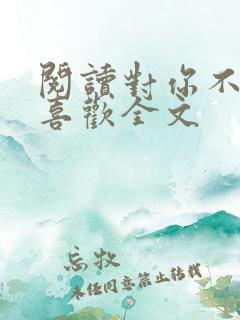 閱讀對你不
喜歡全文
忘牧
未经同意禁止转载